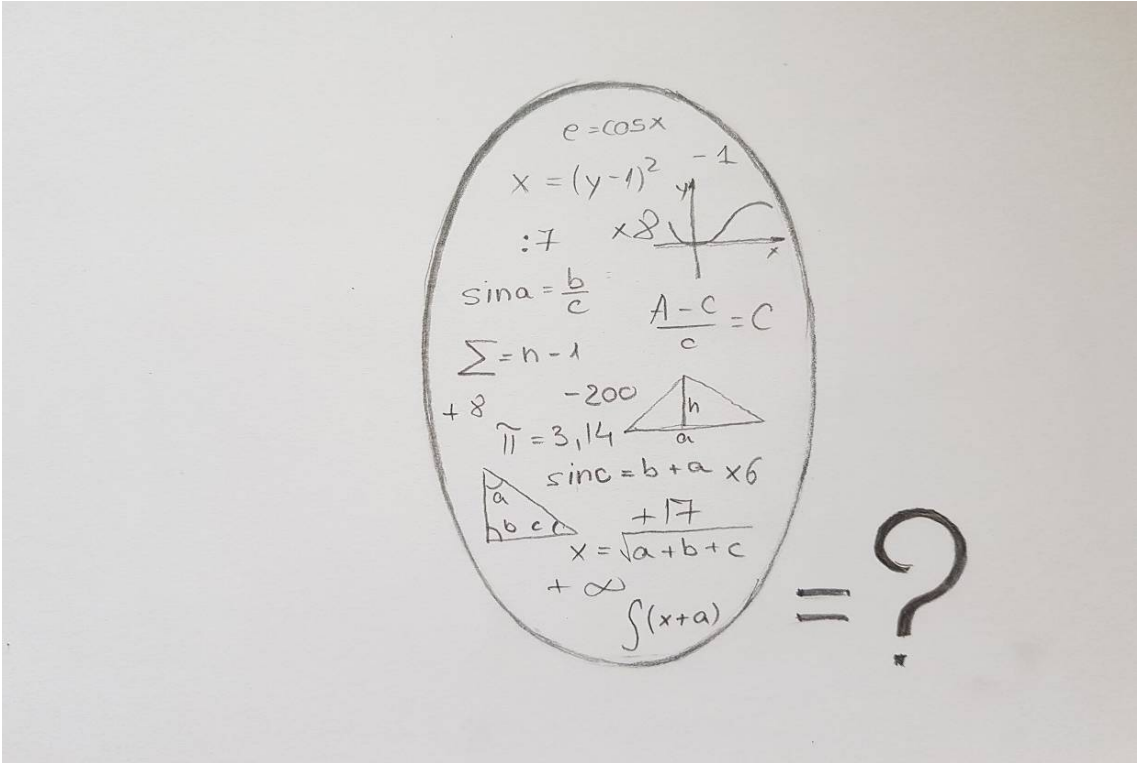 e = cosx
x = (y-1)²
-1
y
:7
x8
x
sina = b/c
A-C/c = C
Σ = n - 1
+ 8
-200
h
π = 3,14
a
sinc = b + a x6
a
b c
+17
x = √a+b+c
+ ∞
∫(x+a)
= ?